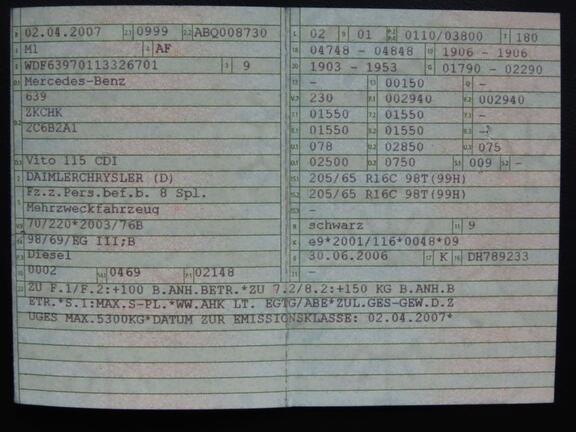 B 02.04.2007 2.1 0999 2.2 ABQ008730
J M1 4 AF
E WDF63970113326701 3 9
D.1 Mercedes-Benz
639
ZKCHK
D.2 2C6B2A1
D.3 Vito 115 CDI
2 DAIMLERCHRYSLER (D)
Fz.z.Pers.bef.b. 8 Spl.
5 Mehrzweckfahrzeug
V.9 70/220*2003/76B
14 98/69/EG III;B
P.3 Diesel
10 0002 14.1 0469 P.1 02148
L 02 9 01 P.2 P.4 0110/03800 T 180
18 04748 - 04848 19 1906 - 1906
20 1903 - 1953 G 01790 - 02290
12 - 13 00150 Q -
V.7 230 F.1 002940 F.2 002940
7.1 01550 7.2 01550 7.3 -
8.1 01550 8.2 01550 8.3 -
U.1 078 U.2 02850 U.3 075
O.1 02500 O.2 0750 S.1 009 S.2 -
15.1 205/65 R16C 98T(99H)
15.2 205/65 R16C 98T(99H)
15.3 -
R schwarz 11 9
K e9*2001/116*0048*09
6 30.06.2006 17 K 16 DH789233
22 ZU F.1/F.2:+100 B.ANH.BETR.*ZU 7.2/8.2:+150 KG B.ANH.B
ETR.*S.1:MAX.S-PL.*WW.AHK LT. EGTG/ABE*ZUL.GES-GEW.D.Z
UGES MAX.5300KG*DATUM ZUR EMISSIONSKLASSE: 02.04.2007*